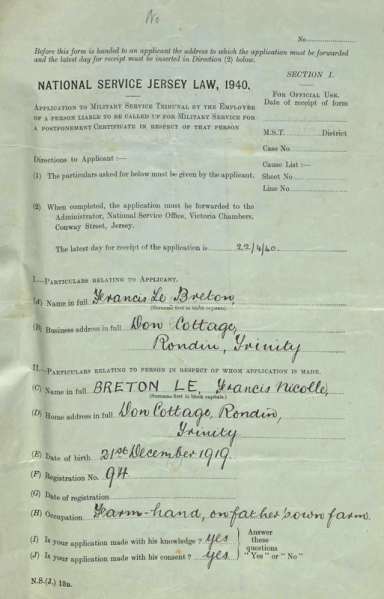 No
No.
Before this form is handed to an applicant the address to which the application must be forwarded
and the latest day for receipt must be inserted in Direction (2) below.
SECTION I.
NATIONAL SERVICE JERSEY LAW, 1940.
FOR OFFICIAL USE.
Date of receipt of form
APPLICATION TO MILITARY SERVICE TRIBUNAL BY THE EMPLOYER
OF A PERSON LIABLE TO BE CALLED UP FOR MILITARY SERVICE FOR
A POSTPONEMENT CERTIFICATE IN RESPECT OF THAT PERSON
M.S.T. District
Case No.
Directions to Applicant :—
Cause List :—
(1) The particulars asked for below must be given by the applicant.
Sheet No.
Line No.
(2) When completed, the application must be forwarded to the
Administrator, National Service Office, Victoria Chambers,
Conway Street, Jersey.
The latest day for receipt of the application is 22/4/40.
I.—PARTICULARS RELATING TO APPLICANT.
(A) Name in full Francis Le Breton,
(Surname first in block capitals)
(B) Business address in full Don Cottage,
Rondin, Trinity
II.—PARTICULARS RELATING TO PERSON IN RESPECT OF WHOM APPLICATION IS MADE.
(C) Name in full BRETON LE, Francis Nicolle,
(Surname first in block capitals)
(D) Home address in full Don Cottage, Rondin,
Trinity
(E) Date of birth 21st December 1919.
(F) Registration No. 94
(G) Date of registration
(H) Occupation Farm-hand, on father's own farm.
(I) Is your application made with his knowledge ? yes
(J) Is your application made with his consent ? yes
Answer
these
questions
"Yes" or "No"
N.S.(J.) 13B.